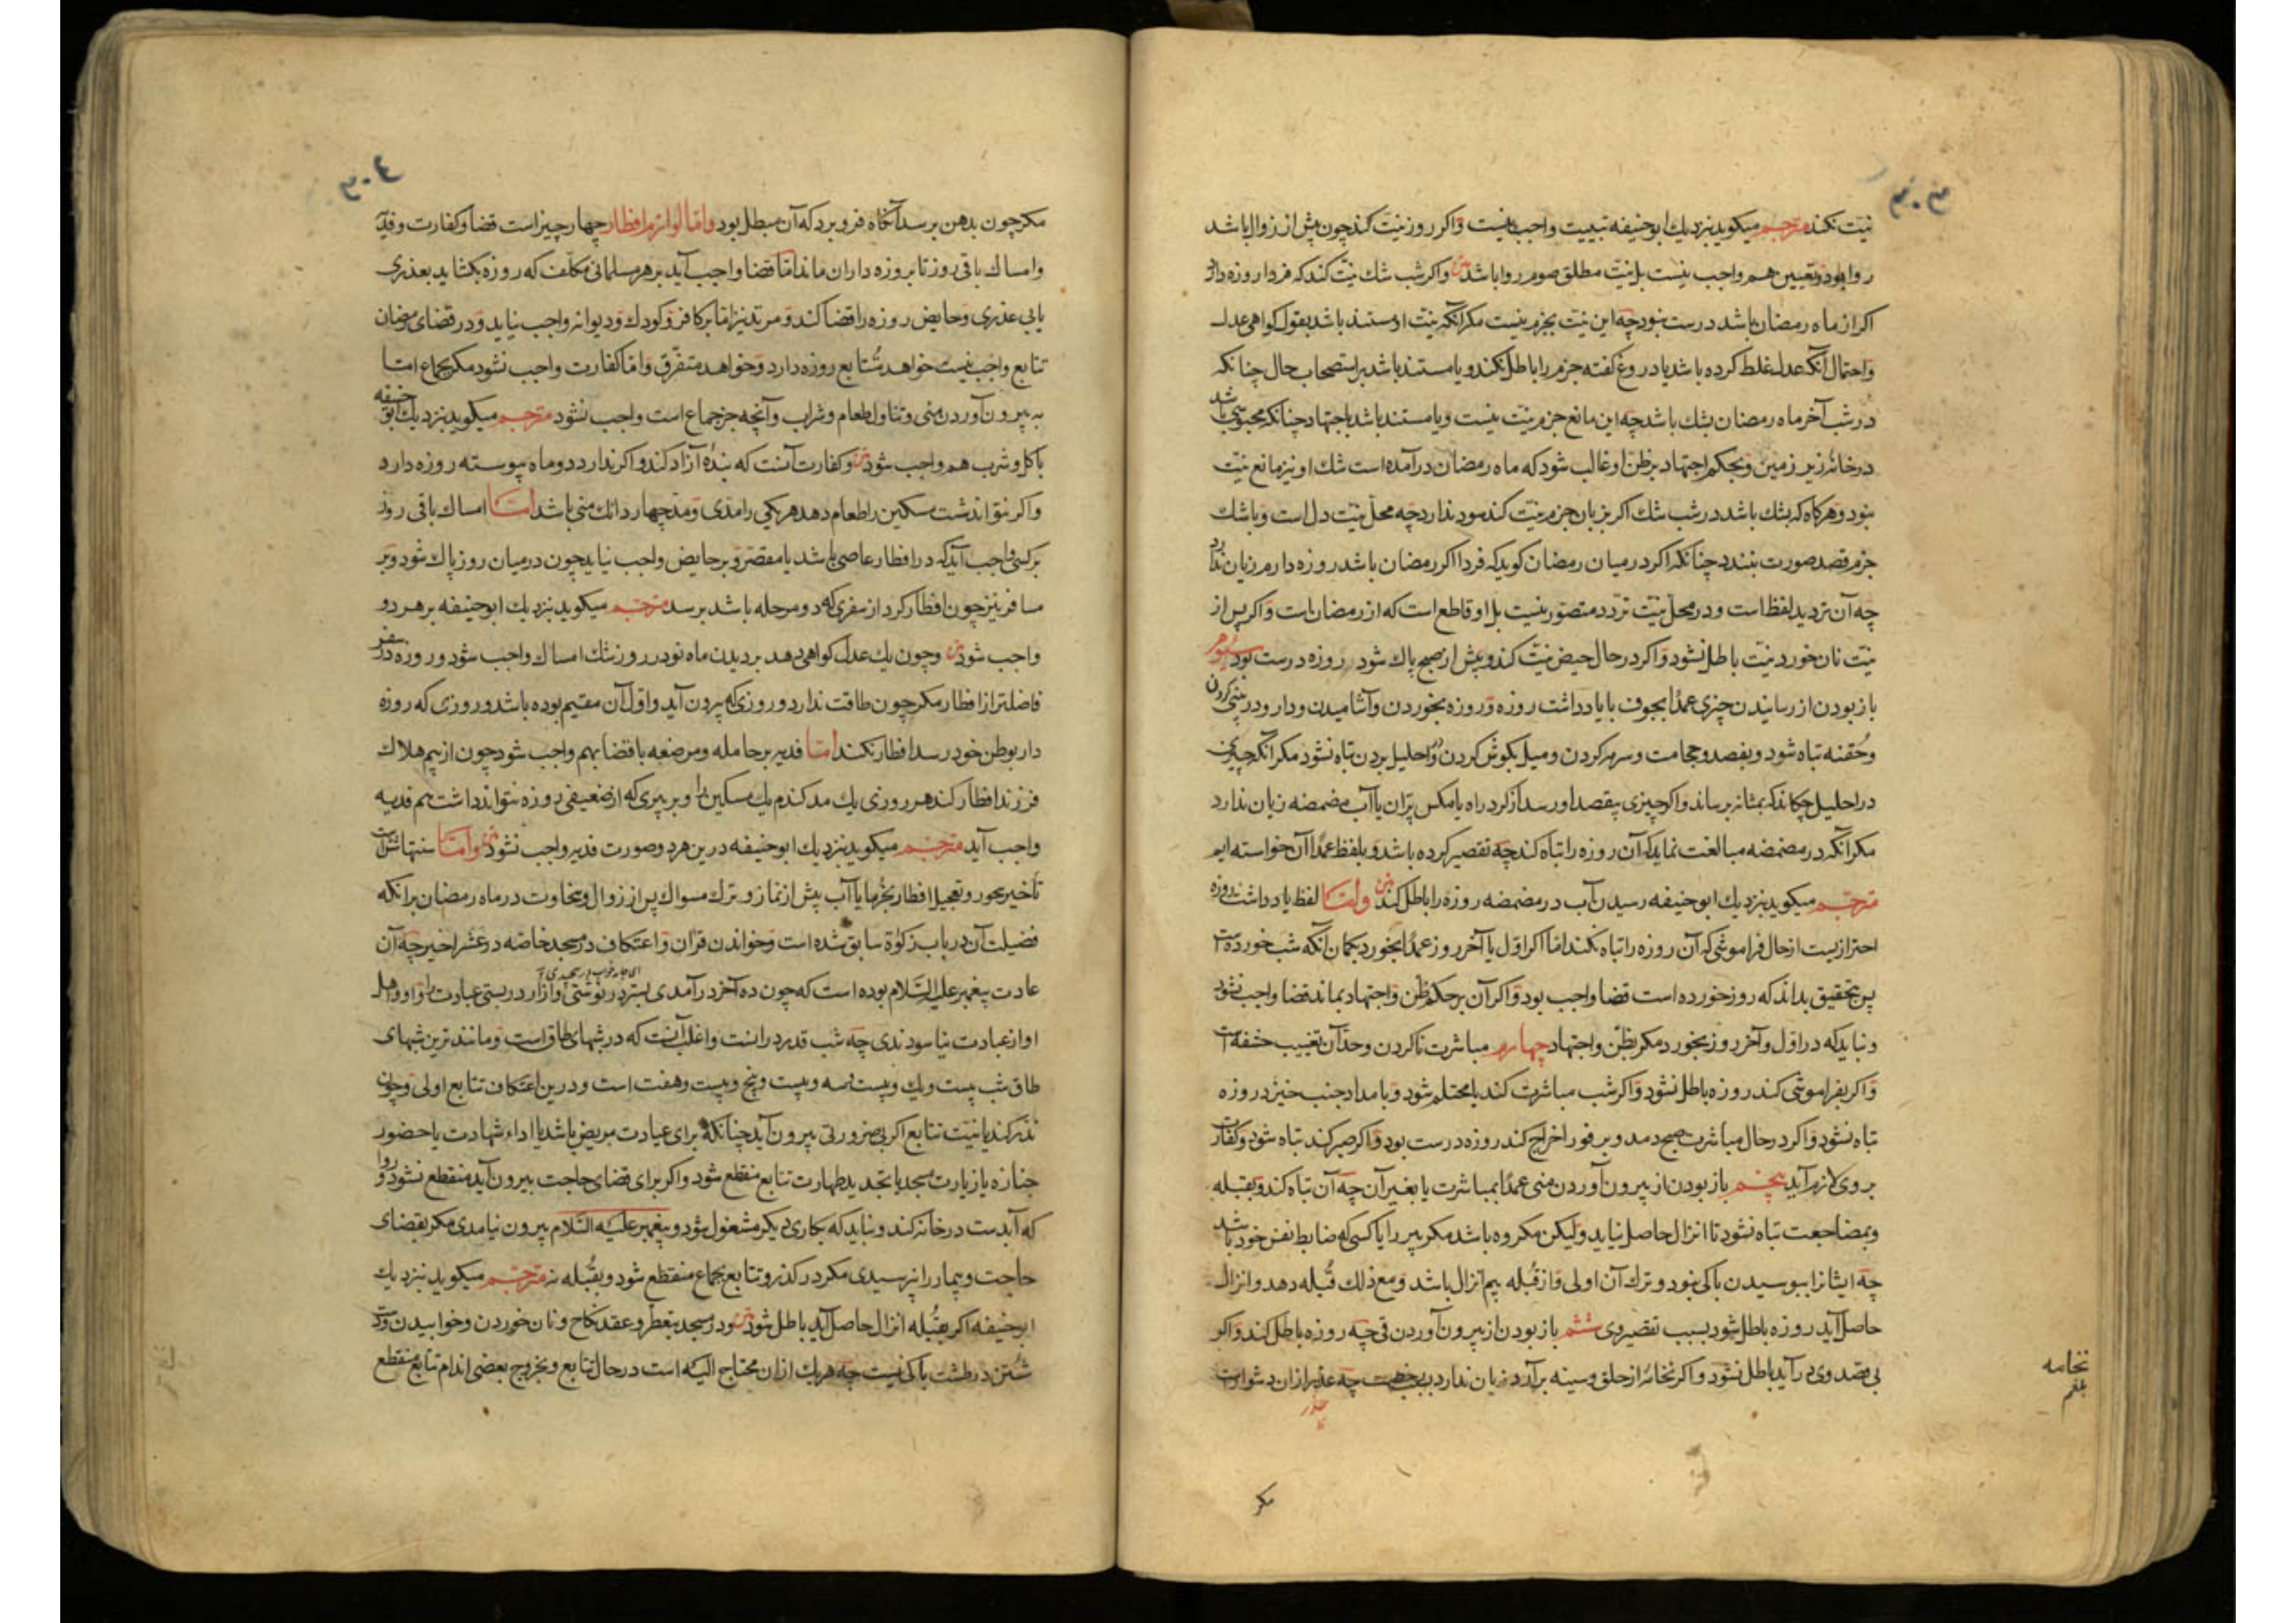 ۳۰۳
نیت نکند مترجم میکوید نزدیك ابو حنیفه تبییت واجب نیست واکر روز نیت کند چون پیش از زوال باشد
روا بود و تعیین هم واجب نیست بل نیت مطلق صوم روا باشد متن واکر شب شك نیت کند که فردا روزه دارد
اکر از ماه رمضان باشد درست نبود چه این نیت بجزم نیست مکر آنکه نیت او مستند باشد بقول کواهی عدل
واحتمال آنکه عدل غلط کرده باشد یا دروغ کفته جزم را باطل نکند و یا مستند باشد بر استصحاب حال چنانکه
در شب آخر ماه رمضان بشك باشد چه این مانع جزم نیت نیست و یا مستند باشد باجتهاد چنانکه محبوسی باشد
در خانه زیر زمین و بحکم اجتهاد بر ظن او غالب شود که ماه رمضان در آمده است شك او نیز مانع نیت
نبود و هرکاه که بشك باشد در شب شك اکر بزبان جزم نیت کند سود ندارد چه محل نیت دل است و با شك
جزم قصد صورت نبندد چنانکه اکر در میان رمضان کوید که فردا اکر رمضان باشد روزه دارم زیان ندارد
چه آن تردید لفظ است و در محل نیت تردد متصور نیست بل او قاطع است که از رمضان است واکر پس از
نیت نان خورد نیت باطل نشود واکر در حال حیض نیت کند و پیش از صبح پاك شود روزه درست بود سیوم
باز بودن از رسانیدن چیزی عمدًا بجوف با یاد داشت روزه و روزه بخوردن و آشامیدن و دارو در بینی کردن
و حقنه تباه شود و بفصد و حجامت و سرمه کردن و میل بکوش کردن و در احلیل بردن تباه نشود مکر آنکه چیزی
در احلیل چکاند که بمثانه برساند واکر چیزی بیقصد او رسد از کرد راه یا مکس پران یا آب مضمضه زیان ندارد
مکر آنکه در مضمضه مبالغت نماید که آن روزه را تباه کند چه تقصیر کرده باشد و بلفظ عمدًا آن خواسته ایم
مترجم میکوید نزدیك ابو حنیفه رسیدن آب در مضمضه روزه را باطل کند متن و امّا لفظ یاد داشت روزه
احترازیست از حال فراموشی که آن روزه را تباه نکند امّا اکر اول یا آخر روز عمدًا بخورد بکمان آنکه شب خورده است
پس بتحقیق بداند که روز خورده است قضا واجب بود واکر آن بر حکم ظن و اجتهاد بماند قضا واجب نشود
و نباید که در اول و آخر روز بخورد مکر بظن و اجتهاد چهارم مباشرت ناکردن و حد آن تغییب حشفه است
واکر بفراموشی کند روزه باطل نشود واکر شب مباشرت کند یا محتلم شود و بامداد جنب خیزد روزه
تباه نشود واکر در حال مباشرت صبح دمد و بر فور اخراج کند روزه درست بود واکر صبر کند تباه شود و کفارت
بروی لازم آید پنجم باز بودن از بیرون آوردن منی عمدًا بمباشرت یا بغیر آن چه آن تباه کند و بقبله
و بمضاجعت تباه نشود تا انزال حاصل نیاید و لیکن مکروه باشد مکر پیر را یا کسی که ضابط نفس خود باشد
چه ایشانرا ببوسیدن باکی نبود و ترك آن اولی و از قبله بیم انزال باشد و مع ذلك قبله دهد و انزال
حاصل آید روزه باطل شود بسبب تقصیر وی ششم باز بودن از بیرون آوردن قی چه روزه باطل کند واکر
بی قصد وی بر آید باطل نشود واکر نخامه از حلق و سینه بر آرد زیان ندارد بسبب رخصت چه حذر ازان دشوار است
حذر
نخامه
بلغم
مکر
۳۰٤
مکر چون بدهن برسد آنکاه فرو برد که آن مبطل بود وامّا لوازم افطار چهار چیز است قضا و کفارت و فدیه
و امساك باقی روز تا بروزه داران ماند امّا قضا واجب آید بر هر مسلمانی مکلف که روزه بکشاید بعذری
یا بی عذری و حایض روزه را قضا کند و مرتد نیز امّا بر کافر و کودك و دیوانه واجب نیاید و در قضای رمضان
تتابع واجب نیست خواهد متتابع روزه دارد و خواهد متفرق و امّا کفارت واجب نشود مکر بجماع امّا
به بیرون آوردن منی و تناول طعام و شراب و آنچه جز جماع است واجب نشود مترجم میکوید نزدیك ابو حنیفه
باکل و شرب هم واجب شود متن و کفارت آنست که بنده آزاد کند واکر ندارد دو ماه پیوسته روزه دارد
واکر نتواند شصت مسکین را طعام دهد هر یکی را مدی و مد چهار دانك منی باشد امّا امساك باقی روز
بر کسی واجب آید که در افطار عاصی باشد یا مقصر و بر حایض واجب نیاید چون در میان روز پاك شود و بر
مسافر نیز چون افطار کرد از سفری که دو مرحله باشد برسد مترجم میکوید نزدیك ابو حنیفه بر هر دو
واجب شود متن و چون یك عدل کواهی دهد بر دیدن ماه نو در روز شك امساك واجب شود و روزه در سفر
فاضلتر از افطار مکر چون طاقت ندارد و روزی که بیرون آید و اول آن مقیم بوده باشد و روزی که روزه
دار بوطن خود رسد افطار نکند امّا فدیه بر حامله و مرضعه با قضا بهم واجب شود چون از بیم هلاك
فرزند افطار کند هر روزی یك مد کندم یك مسکین را و بر پیری که از ضعیفی روزه نتواند داشت هم فدیه
واجب آید مترجم میکوید نزدیك ابو حنیفه درین هر دو صورت فدیه واجب نشود متن و امّا سنتهاش
تأخیر سحور و تعجیل افطار بخرما یا آب پیش از نماز و ترك مسواك پس از زوال و سخاوت در ماه رمضان بر آنکه
فضیلت آن در باب زکوة سابق شده است و خواندن قرآن و اعتکاف در مسجد خاصّه در عشر اخیر چه آن
عادت پیغمبر علیه السّلام بوده است که چون ده آخر در آمدی بستر در نوشتی و ازار در بستی عبادت را و او و اهل
او از عبادت نیاسودندی چه شب قدر در آنست و اغلب آنست که در شبهای طاق است و مانندترین شبهای
طاق شب بیست و یك و بیست و سه و بیست و پنج و بیست و هفت است و درین اعتکاف تتابع اولی و چون
نذر کند یا نیت تتابع اکر بی ضرورتی بیرون آید چنانکه برای عیادت مریض باشد یا اداء شهادت یا حضور
جنازه یا زیارت مسجد یا تجدید طهارت تتابع منقطع شود واکر برای قضای حاجت بیرون آید منقطع نشود و روا
که آبدست در خانه کند و نباید که بکاری دیکر مشغول شود و پیغمبر علیه السّلام بیرون نیامدی مکر بقضای
حاجت و بیمار را نپرسیدی مکر در کذر و تتابع بجماع منقطع شود و بقبله نه مترجم میکوید نزدیك
ابو حنیفه اکر بقبله انزال حاصل آید باطل شود متن و در مسجد بتعطر و عقد نکاح و نان خوردن و خوابیدن و دست
شستن در طشت باکی نیست چه هر یك ازان محتاج الیه است در حال تتابع و بخروج بعضی اندام تتابع منقطع